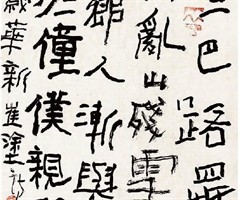 三巴路羈
亂山殘雪
鄉人漸與
於僮僕親
歲華新崔塗